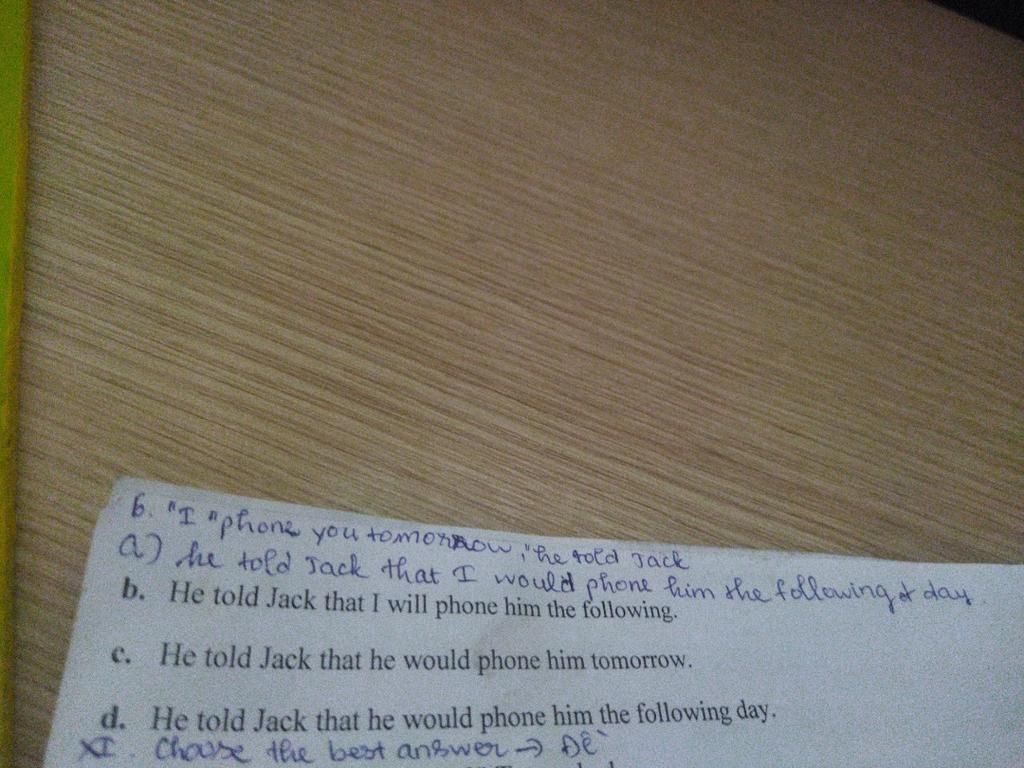 6. "I "phone you tomorrow," he told Jack
a) he told Jack that I would phone him the following day.
b. He told Jack that I will phone him the following.
c. He told Jack that he would phone him tomorrow.
d. He told Jack that he would phone him the following day.
XI. Choose the best answer → Đề